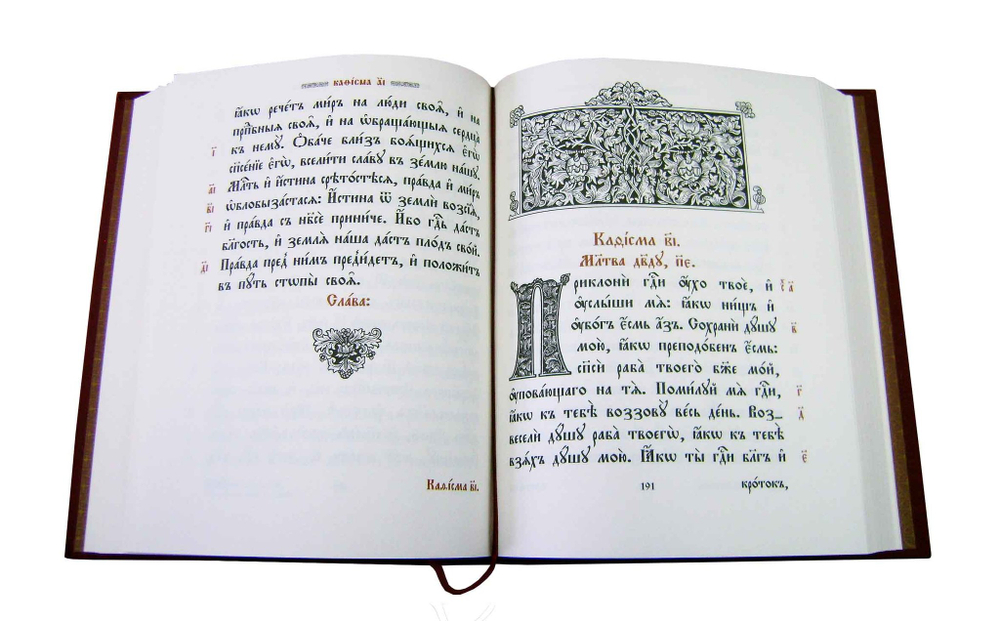 каѳі́сма а҃і
ꙗ҆́кѡ рече́тъ ми́ръ на лю́ди своѧ҄, и҆ на
прⷣпбныѧ своѧ҄, и҆ на ѡ҆браща́ющыѧ сердца̀
къ немꙋ̀. Ѻ҆ба́че бли́зъ боѧ́щихсѧ є҆гѡ̀
і҃ сп҃се́нїе є҆гѡ̀, всели́ти сла́вꙋ въ зе́млю на́шꙋ.
а҃і Млⷭ҇ть и҆ и҆́стина срѣто́стѣсѧ, пра́вда и҆ ми́ръ
в҃і ѡ҆блобыза́стасѧ: И҆́стина ѿ землѝ возсїѧ̀,
г҃і и҆ пра́вда съ нб҃сѐ прини́че. И҆́бо гдⷭ҇ь да́стъ
бл҃гость, и҆ землѧ̀ на́ша да́стъ пло́дъ сво́й.
д҃і Пра́вда пред̾ ни́мъ пред̾и́детъ, и҆ положи́тъ
въ пꙋ́ть стѡпы̀ своѧ҄.
Сла́ва:
Каѳі́сма в҃і.
Каѳі́сма в҃і.
Мл҃тва дв҃дꙋ, п҃є.
Приклонѝ гдⷭ҇и ᲂу҆́хо твоѐ, и҆ а҃
ᲂу҆слы́ши мѧ̀: ꙗ҆́кѡ ни́щъ и҆
ᲂу҆бо́гъ є҆́смь а҆́зъ. Сохранѝ дꙋ́шꙋ в҃
мою̀, ꙗ҆́кѡ преподо́бенъ є҆́смь:
сп҃сѝ раба̀ твоего̀ бж҃е мо́й,
ᲂу҆пова́ющаго на тѧ̀. Поми́лꙋй мѧ̀ гдⷭ҇и, г҃
ꙗ҆́кѡ къ тебѣ̀ воззовꙋ̀ ве́сь де́нь. Воз_ д҃
веселѝ дꙋ́шꙋ раба̀ твоегѡ̀, ꙗ҆́кѡ къ тебѣ̀
взѧ́хъ дꙋ́шꙋ мою̀. Ꙗ҆́кѡ ты̀ гдⷭ҇и бл҃гъ и҆ є҃
191 кро́токъ,